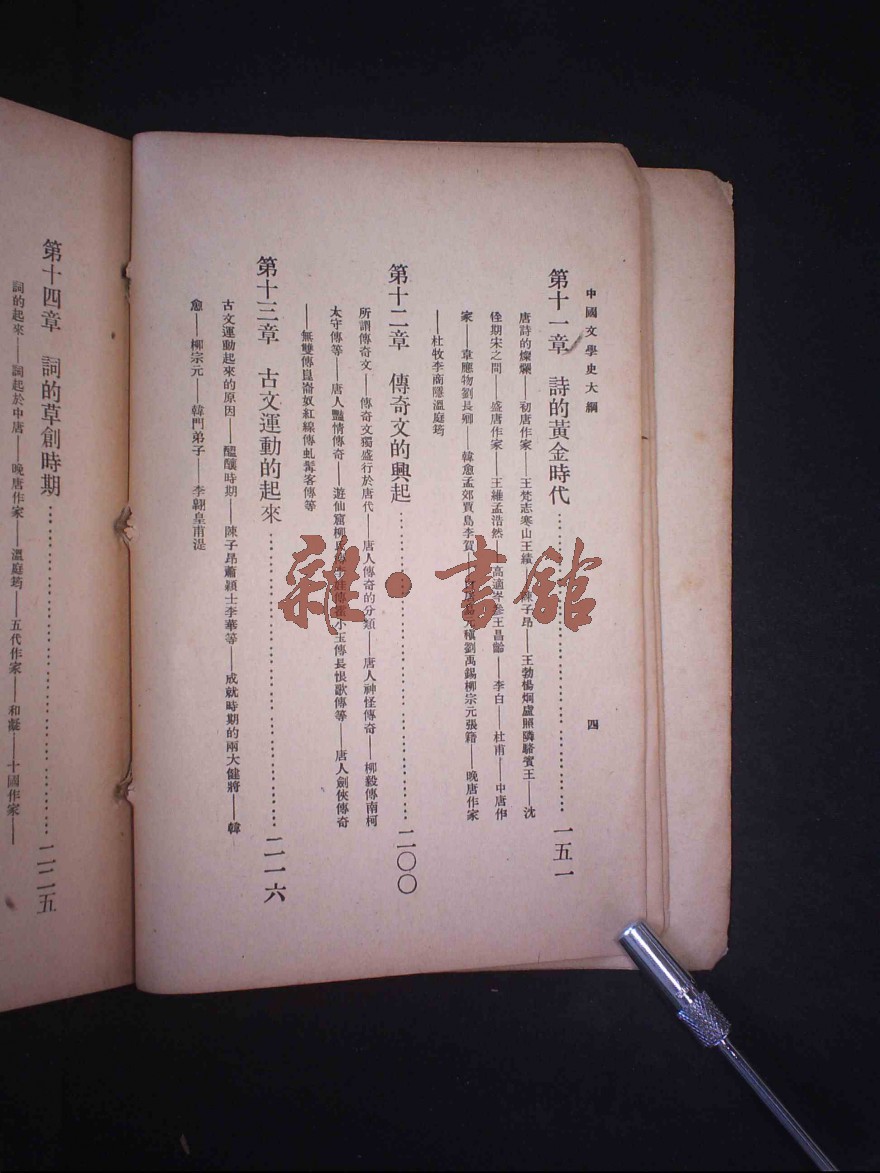 中國文學史大綱
四
第十一章 詩的黃金時代……一五一
唐詩的燦爛——初唐作家——王梵志寒山王績——陳子昂——王勃楊炯盧照隣駱賓王——沈
佺期宋之問——盛唐作家——王維孟浩然——高適岑參王昌齡——李白——杜甫——中唐作
家——韋應物劉長卿——韓愈孟郊賈島李賀——元稹劉禹錫柳宗元張籍——晚唐作家
——杜牧李商隱溫庭筠
第十二章 傳奇文的興起……二〇〇
所謂傳奇文——傳奇文獨盛行於唐代——唐人傳奇的分類——唐人神怪傳奇——柳毅傳南柯
太守傳等——唐人豔情傳奇——遊仙窟柳氏傳小玉傳長恨歌傳等——唐人劍俠傳奇
——無雙傳崑崙奴紅線傳虬髯客傳等
第十三章 古文運動的起來……二一六
古文運動起來的原因——醞釀時期——陳子昂蕭穎士李華等——成就時期的兩大健將——韓
愈——柳宗元——韓門弟子——李翺皇甫湜
第十四章 詞的草創時期……二二五
詞的起來——詞起於中唐——晚唐作家——溫庭筠——五代作家——和凝——十國作家——
雜·書館